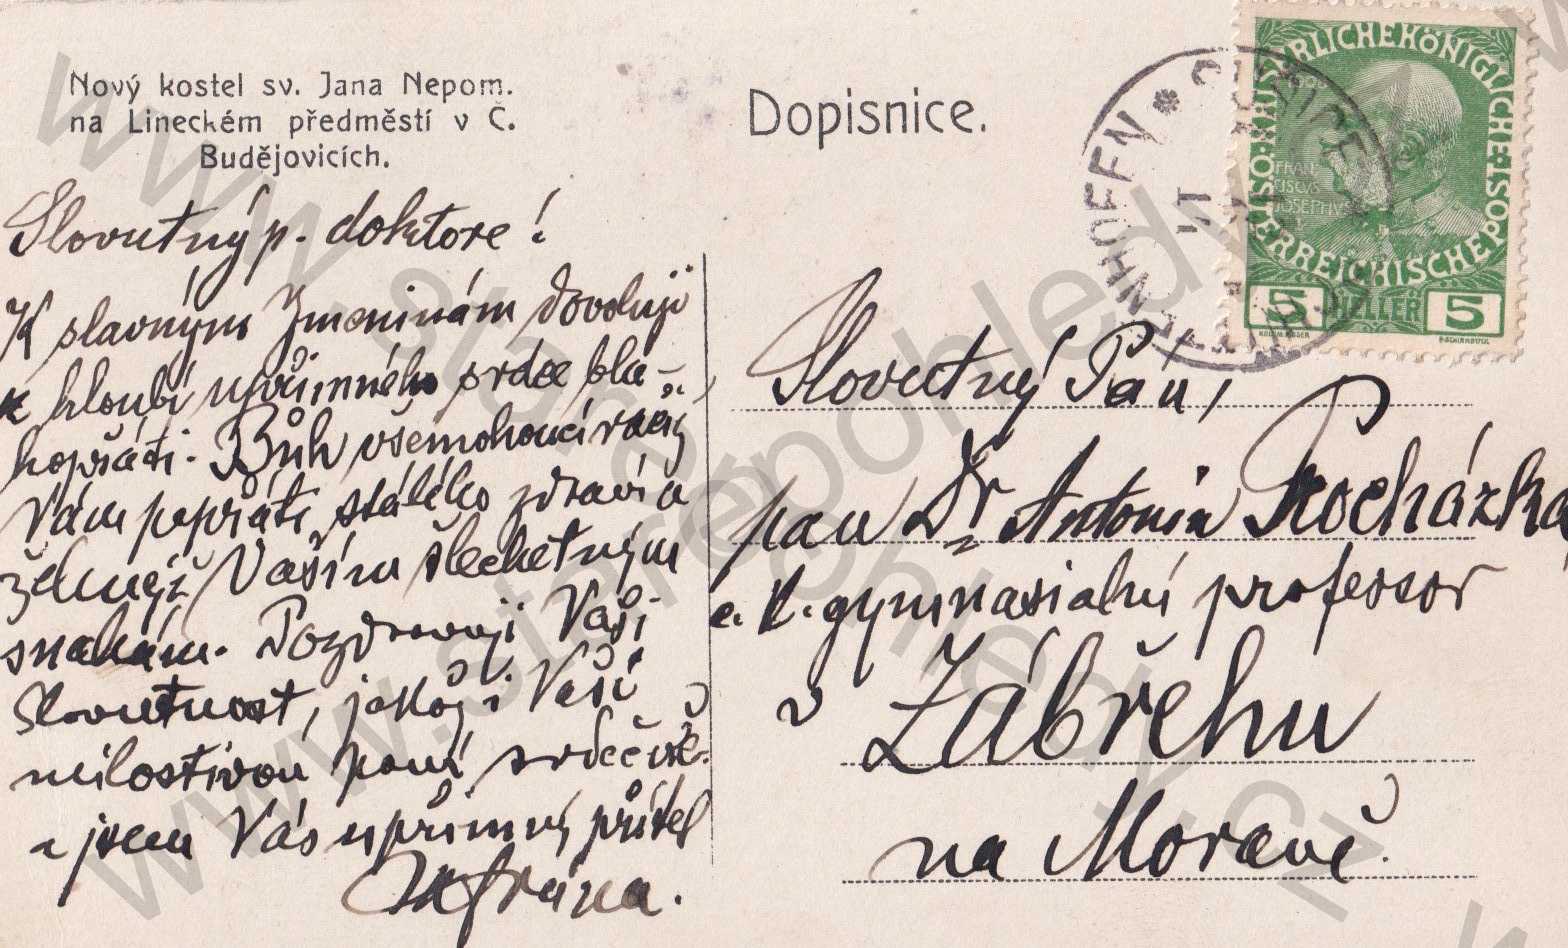 Nový kostel sv. Jana Nepom.
na Lineckém předměstí v Č.
Budějovicích.
Dopisnice.
KAISERLICHE KÖNIGLICHE ÖSTERREICHISCHE POST
5 HELLER 5
Slovutný p. doktore!
K slavným Jmeninám dovoluji
z hloubi upřímného srdce bla-
hopřáti. Bůh všemohoucí račiž
Vám popřáti stálého zdraví a
zdar Vašim šlechetným
snahám. Pozdravuji Vaši
Slovutnost, jakož i Vaši
milostivou paní srdečně
a jsem Vás upřímný přítel
Slovutný Pán,
pan Dr Antonín Procházka
c. k. gymnasialní professor
v Zábřehu
na Moravě.
www.starepohledy.cz